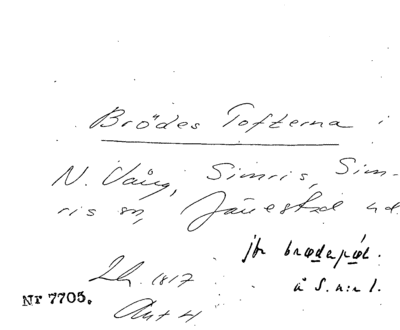 Brödes Tofterna i
N. Vång, Simris, Sim-
ris sn, Järrestad hd
jfr
å S. n:r 1.
Lh. 1817
Nr 7705. Akt 4